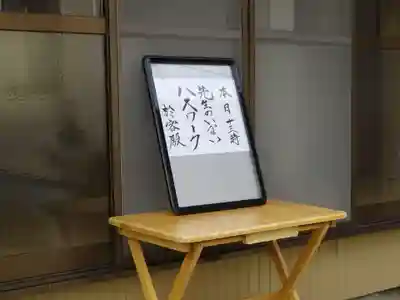 本日十三時
先生のいない
ハスワーク
於客殿